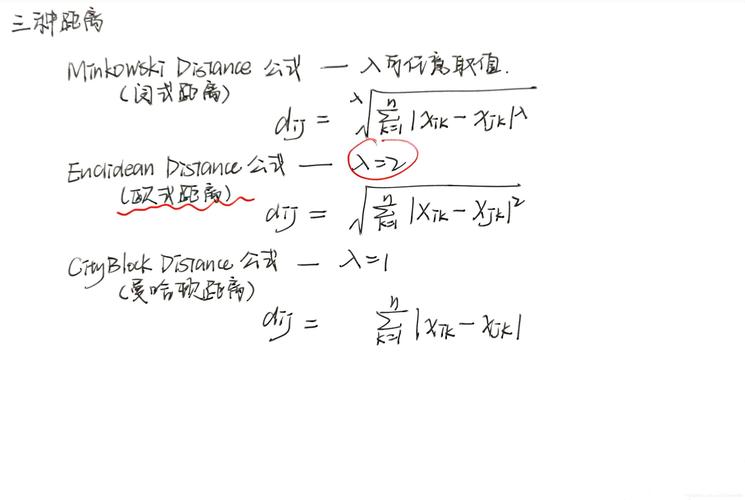 三种距离
Minkowski Distance 公式 — λ可任意取值.
(闵式距离)
dij = λ√ n∑k=1 |xik - xjk|λ
Euclidean Distance 公式 — λ=2
(欧式距离)
dij = √ n∑k=1 |xik - xjk|2
CityBlock Distance 公式 — λ=1
(曼哈顿距离)
dij = n∑k=1 |xik - xjk|